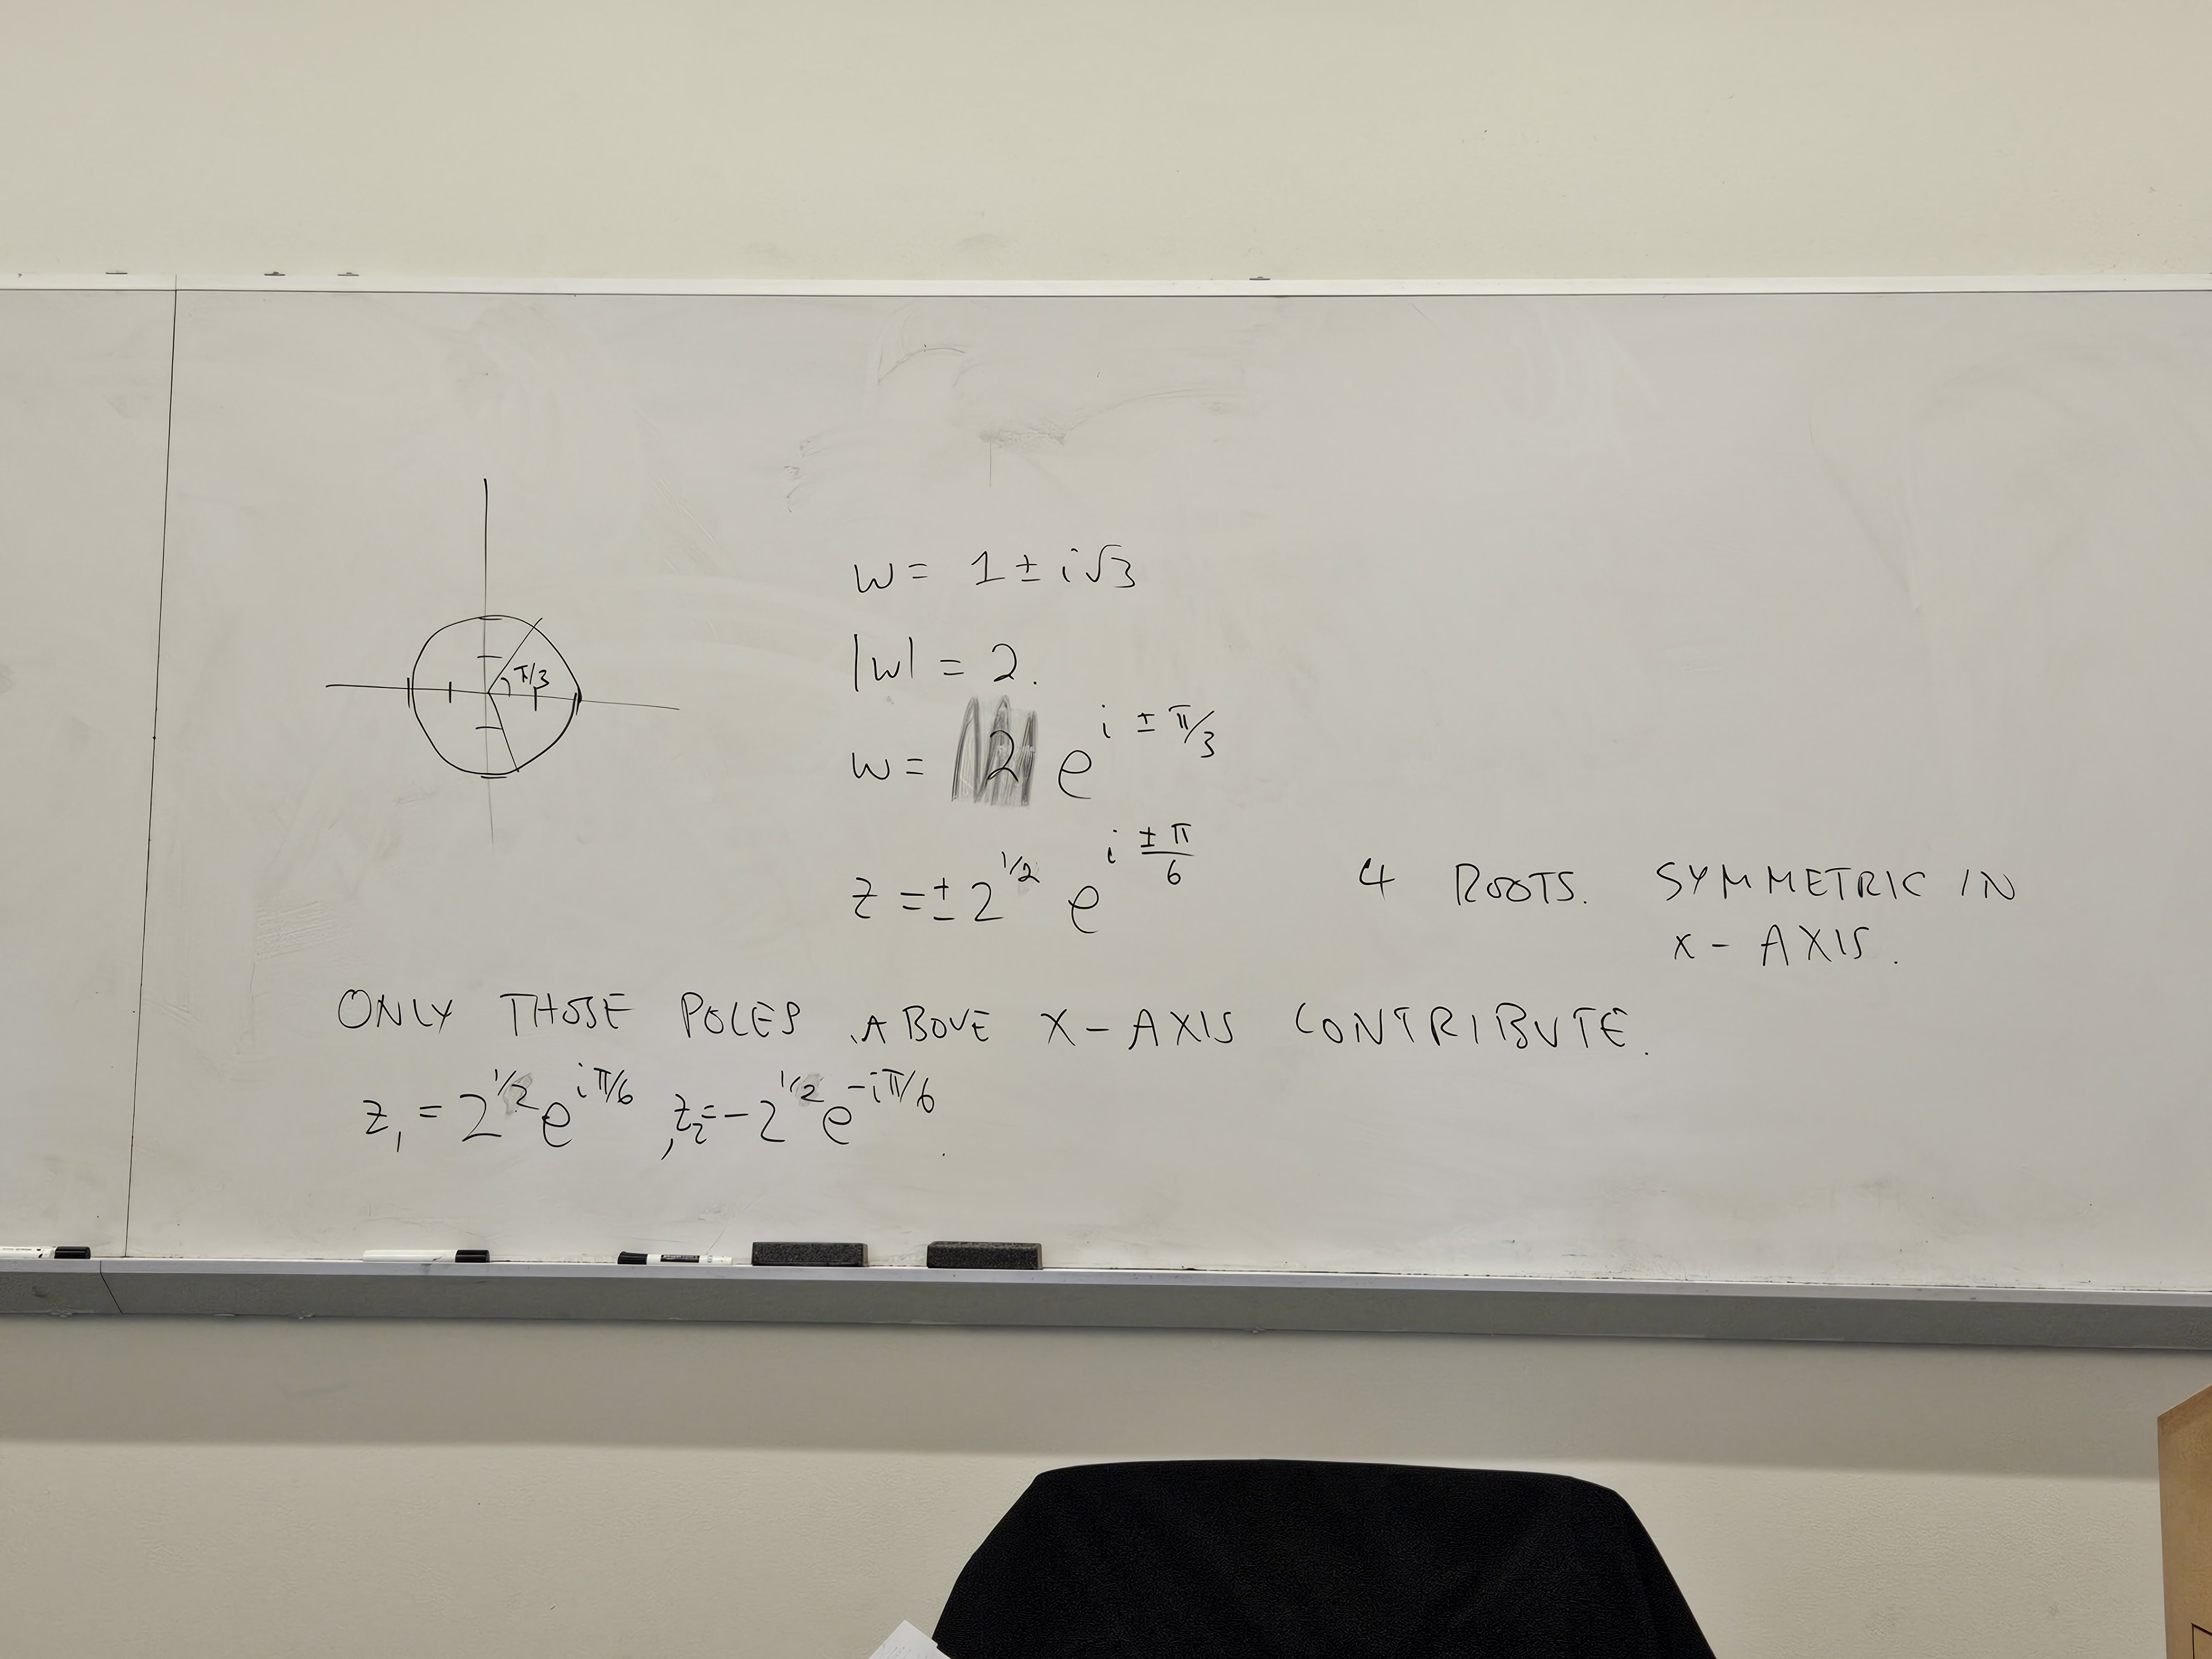 π/3
w = 1 ± i√3
|w| = 2.
w = 2 e^{i ± π/3}
z = ± 2^{1/2} e^{i ±π/6}
4 ROOTS. SYMMETRIC IN
x - AXIS.
ONLY THOSE POLES ABOVE X-AXIS CONTRIBUTE.
z₁ = 2^{1/2} e^{iπ/6}, z₂ = -2^{1/2} e^{-iπ/6}.